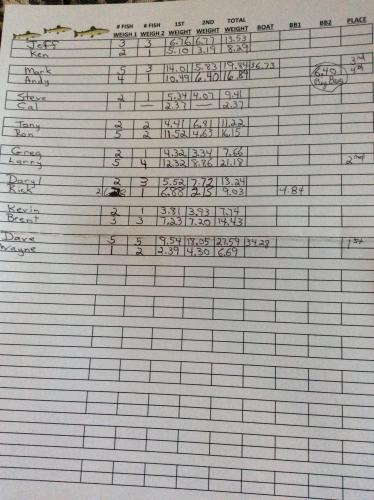 # FISH WEIGH 1 # FISH WEIGH 2 1ST WEIGHT 2ND WEIGHT TOTAL WEIGHT BOAT BB1 BB2 PLACE
Jeff 3 3 6.76 6.77 13.53
Ken 2 1 5.10 3.19 8.29
Mark 5 3 14.01 5.83 19.84 36.73 3rd
Andy 4 1 10.49 6.40 16.89 6.40 Big Bag 4th
Steve 2 1 5.34 4.07 9.41
Cal 1 — 2.37 — 2.37
Tony 2 2 4.41 6.81 11.22
Ron 5 2 11.52 4.63 16.15
Greg 2 2 4.32 3.34 7.66
Larry 5 4 12.32 8.86 21.18 2nd
Daryl 2 3 5.52 7.72 13.24
Rick 1 6.88 2.15 9.03 4.84
Kevin 2 1 3.81 3.93 7.74
Brent 3 3 7.23 7.20 14.43
Dave 5 5 9.54 18.05 27.59 34.28 1st
Wayne 1 2 2.39 4.30 6.69